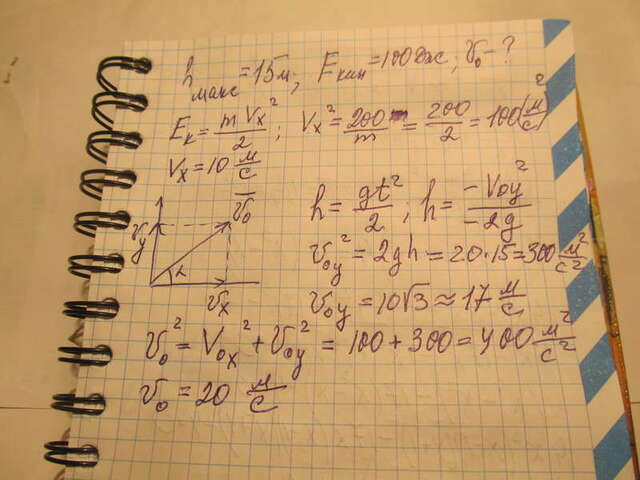 h макс = 15м; Eкин = 100Дж; v₀ - ?
Eк = mVx²/2; Vx² = 200/m = 200/2 = 100(м/с)²
Vx = 10 м/с
vy v₀ α vx
h = gt²/2; h = -V₀y²/-2g
v₀y² = 2gh = 20·15 = 300 м²/с²
v₀y = 10√3 ≈ 17 м/с
v₀² = V₀x² + V₀y² = 100 + 300 = 400 м²/с²
v₀ = 20 м/с